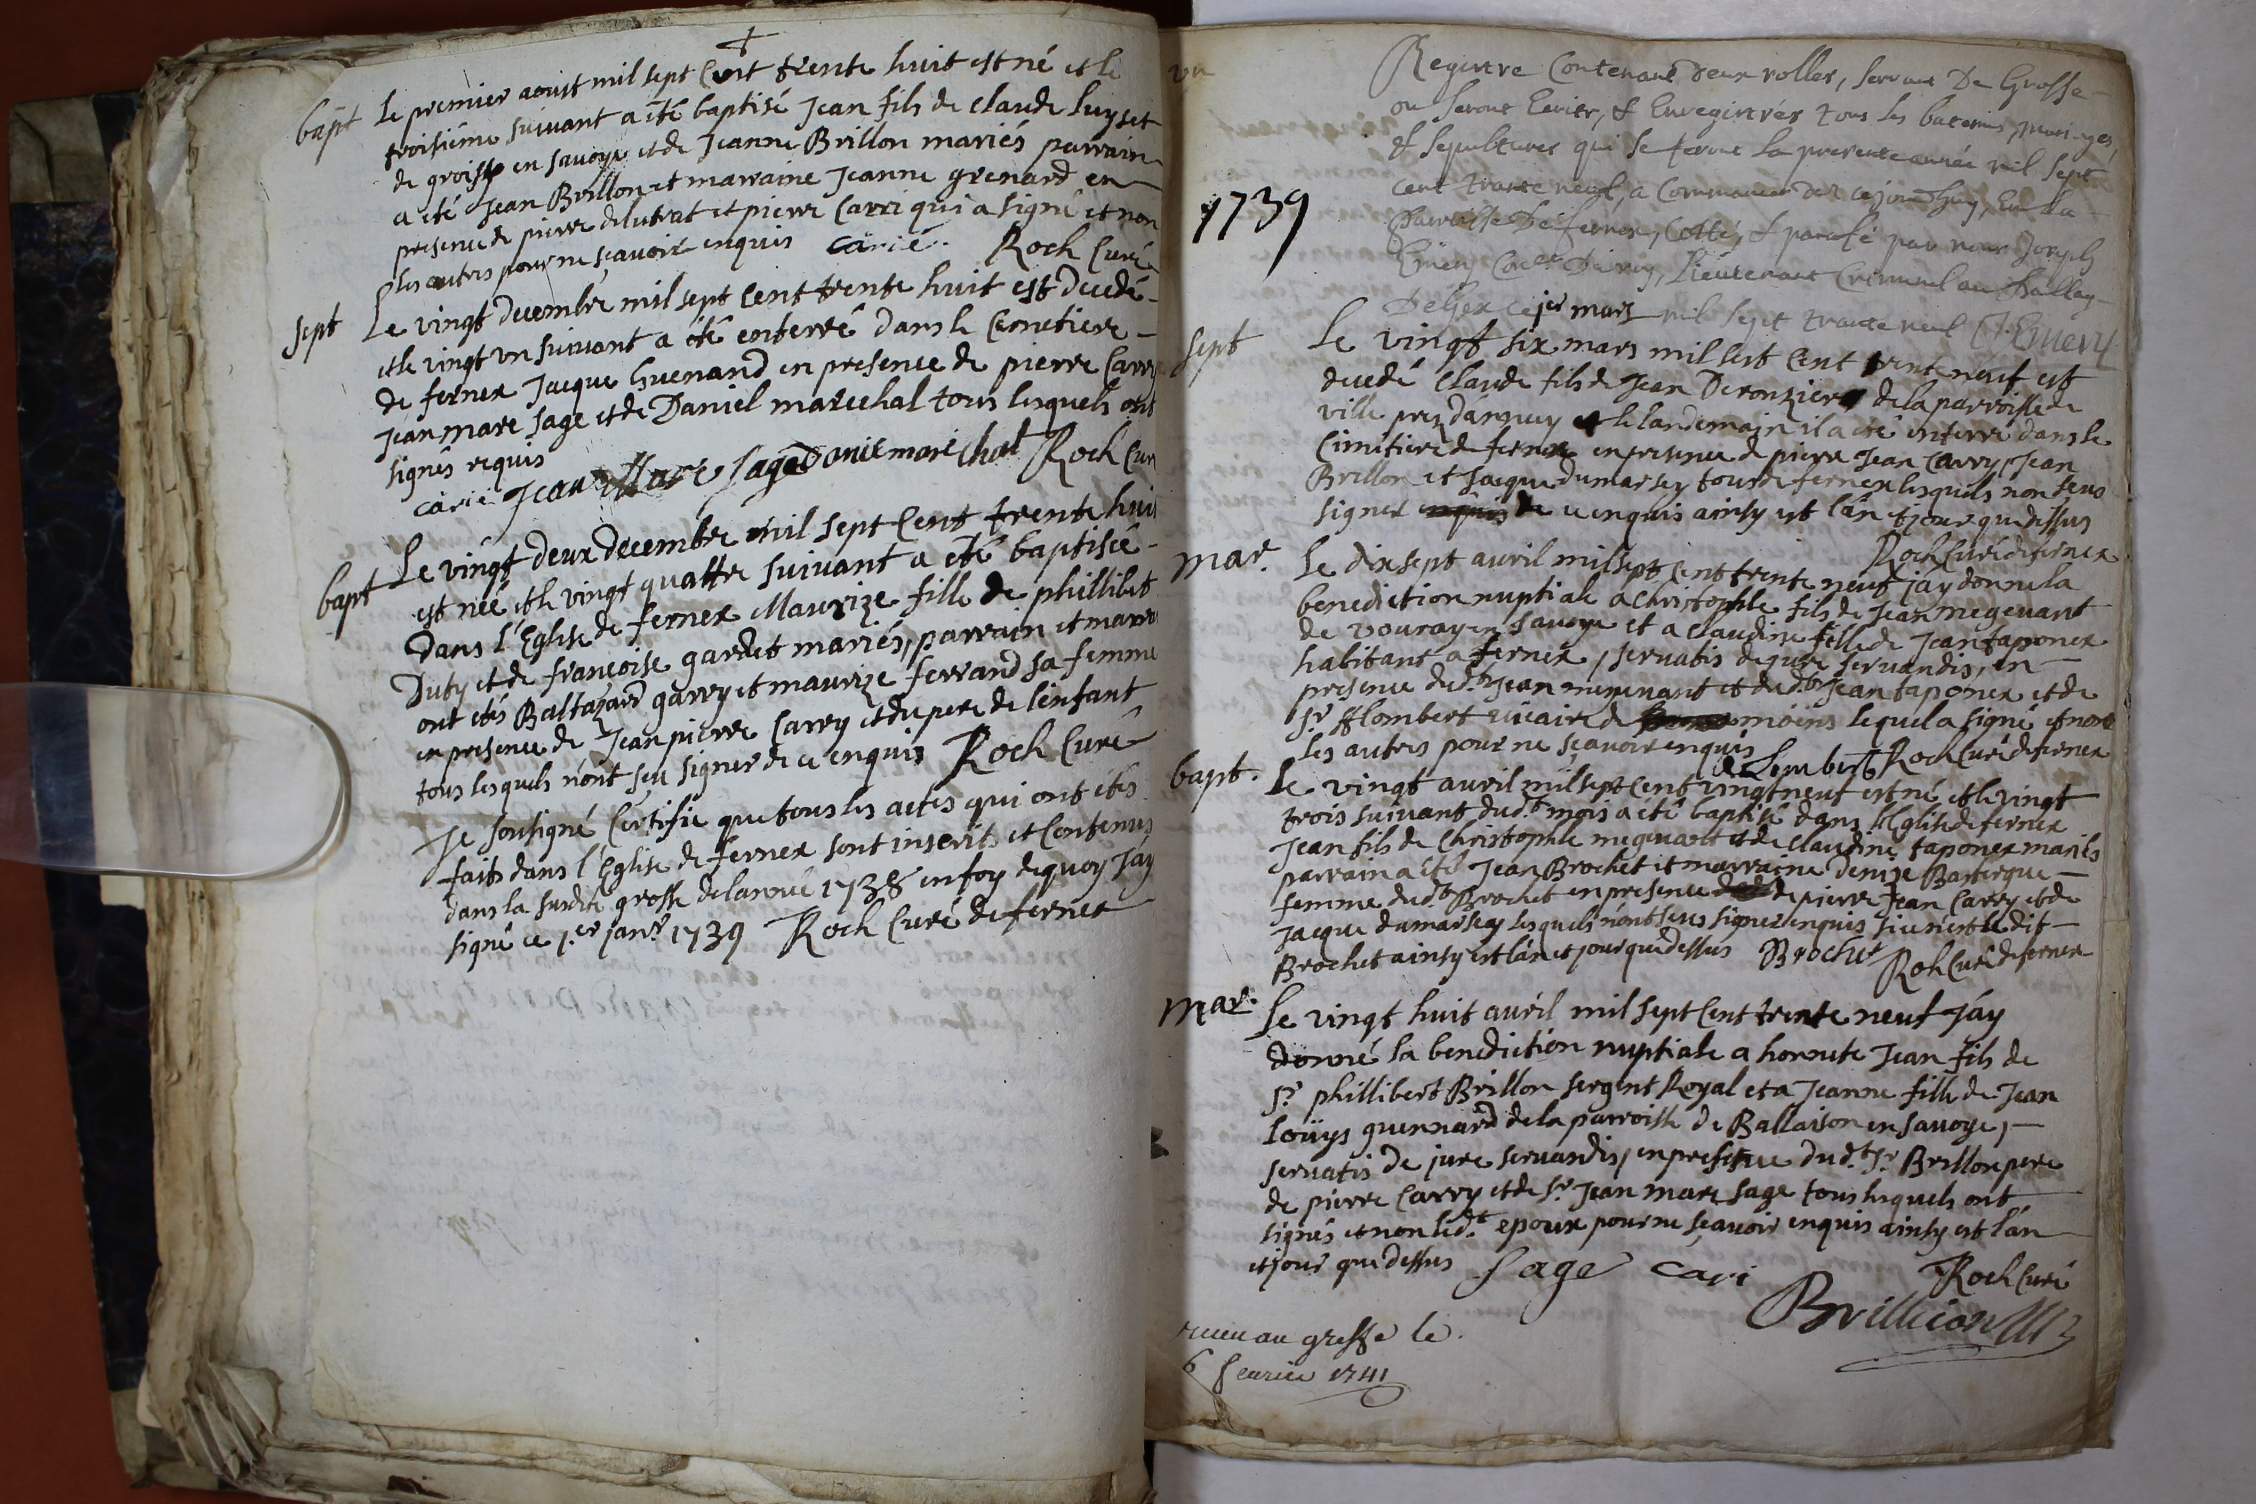 bapt
Le premier aoust mil sept Cent trente huit est né et le
troisiéme suivant a été baptisé Jean fils de Claude Luyset
de groisy en savoye et de Jeanne Brillon mariés parrain
a été Jean Brillon et marraine Jeanne grenard en
presence de pierre delutrat et pierre Carri qui a signé et non
les autres pour ne sçavoir enquis carrié. Roch Curé
sept
Le vingt decembre mil sept Cent trente huit est decedé
et le vingt un suivant a été enterré dans le Cemetiere
de fernex Jacque Guenand en presence de pierre Carry
Jean marc sage et de Daniel marechal tous lesquels ont
signés requis
carié Jean Marc Sage Daniel mare chal Roch Cur
bapt
Le vingt deux decembre mil sept Cent trente hui
est néé et le vingt quattre suivant a été baptiséé
Dans l'Eglise de fernex Maurize fille de phillibet
Duty et de francoise gardet mariés, parrain et marra
ont etés Baltazard garry et maurize ferrand sa femme
en presence de Jean pierre Carry et du pere de lenfant
tous lesquels n'ont seu signer de ce enquis Roch Curé
Je soussigné Certifie que tous les actes qui ont étés
faits dans l'Eglise de fernex sont inscrits et Contenus
dans la susdite grosse de lannéé 1738 en foy de quoy J'ay
signé ce 1.er janr. 1739 Roch Curé de fernex
Registre Contenant deux rolles, servant De Grosse
ou seront Ecrits, & Enregistrés tous les batemes, mariages,
& sepultures qui se feront la presente année mil sept
cent trante neuf, a Commencer dez cejourdhuy, En la
1739
Parroisse De fernex, Cotté, & parafé par nous Joseph
Emery Coner. Du roy, Lieutenant Criminel au Balliage
De Gex ce 1er mars mil sept trante neuf J. Emery
sept
Le vingt six mars mil sept Cent trente neuf est
decedé Claude fils de Jean Deronzier de la parroisse de
ville prez dannecy et le landemain il a été enterré dans le
Cimetiere de fernex en presence de pierre Jean Carry, Jean
Brillon et Jacque dumarsey tous de fernex lesquels n'on seus
signer de ce enquis ainsy est l'an et jour que dessus
Roch Curé de fernex
mar.
Le dix sept avril mil sept Cent trente neuf Jay donné la
benediction nuptiale a Christophle fils de Jean megevant
de vouray en savoye et a Claudine fille de Jean taponex
habitant a fernex, servatis de jure servandis, en
presence dud.t Jean megevant et dud.t Jean taponex et de
Sr. Alombert vicaire de moëns lequel a signé et non
les autres pour ne sçavoir enquis
Alombert Roch Curé de fernex
bapt.
Le vingt avril mil sept Cent vingt neuf est né et le vingt
trois suivant dud.t mois a été baptisé dans lEglise de fernex
Jean fils de Christophle megevant et de Claudine taponex mariés
parrain a été Jean Brochet et marraine Denize Bastergue
femme dud.t Brochet en presence de pierre Jean Carry et de
Jacque dumarsey lesquels n'ont seus signer enquis si ce n'est le dit
Brochet ainsy est l'an et jour que dessus Brochet
Roh Curé de fernex
mar.
Le vingt huit avril mil sept Cent trente neuf J'ay
donné la benediction nuptiale a honnete Jean fils de
Sr. phillibert Brillon sergent Royal et a Jeanne fille de Jean
Loüys guennard de la parroisse de Ballaison en savoye,
servatis de jure servandis, en presence dud.t Sr. Brillon pere
de pierre Carry et de Sr. Jean marc sage tous lesquels ont
signés et non led.t epoux pour ne sçavoir enquis ainsy est l'an
et jour que dessus Sage cari Roch Curé
Brillion
receu au greffe le
6 fevrier 1741